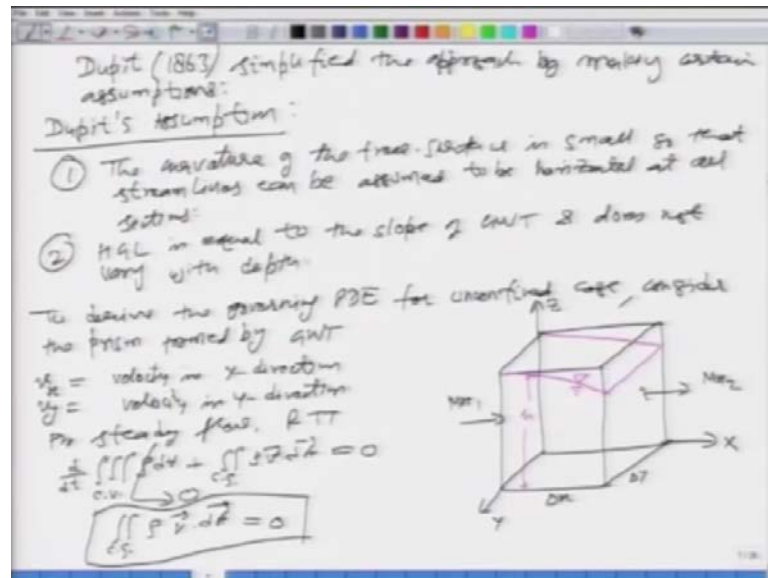 Dupit (1863) simplified the approach by making certain
assumptions:
Dupit's Assumption :
① The curvature of the free-surface is small so that
streamlines can be assumed to be horizontal at all
sections.
② HGL is equal to the slope of GWT & does not
vary with depth.
To derive the governing PDE for unconfined case, consider
the prism formed by GWT
vx = velocity in x-direction
vy = velocity in y-direction
For steady flow, RTT
d/dt ∭ ρ dV + ∬ ρ V⃗.dA⃗ = 0
C.V. → 0 C.S.
∬ ρ V⃗.dA⃗ = 0
C.S.
Z
Mx1
Mx2
h
X
Y
Δx
ΔY